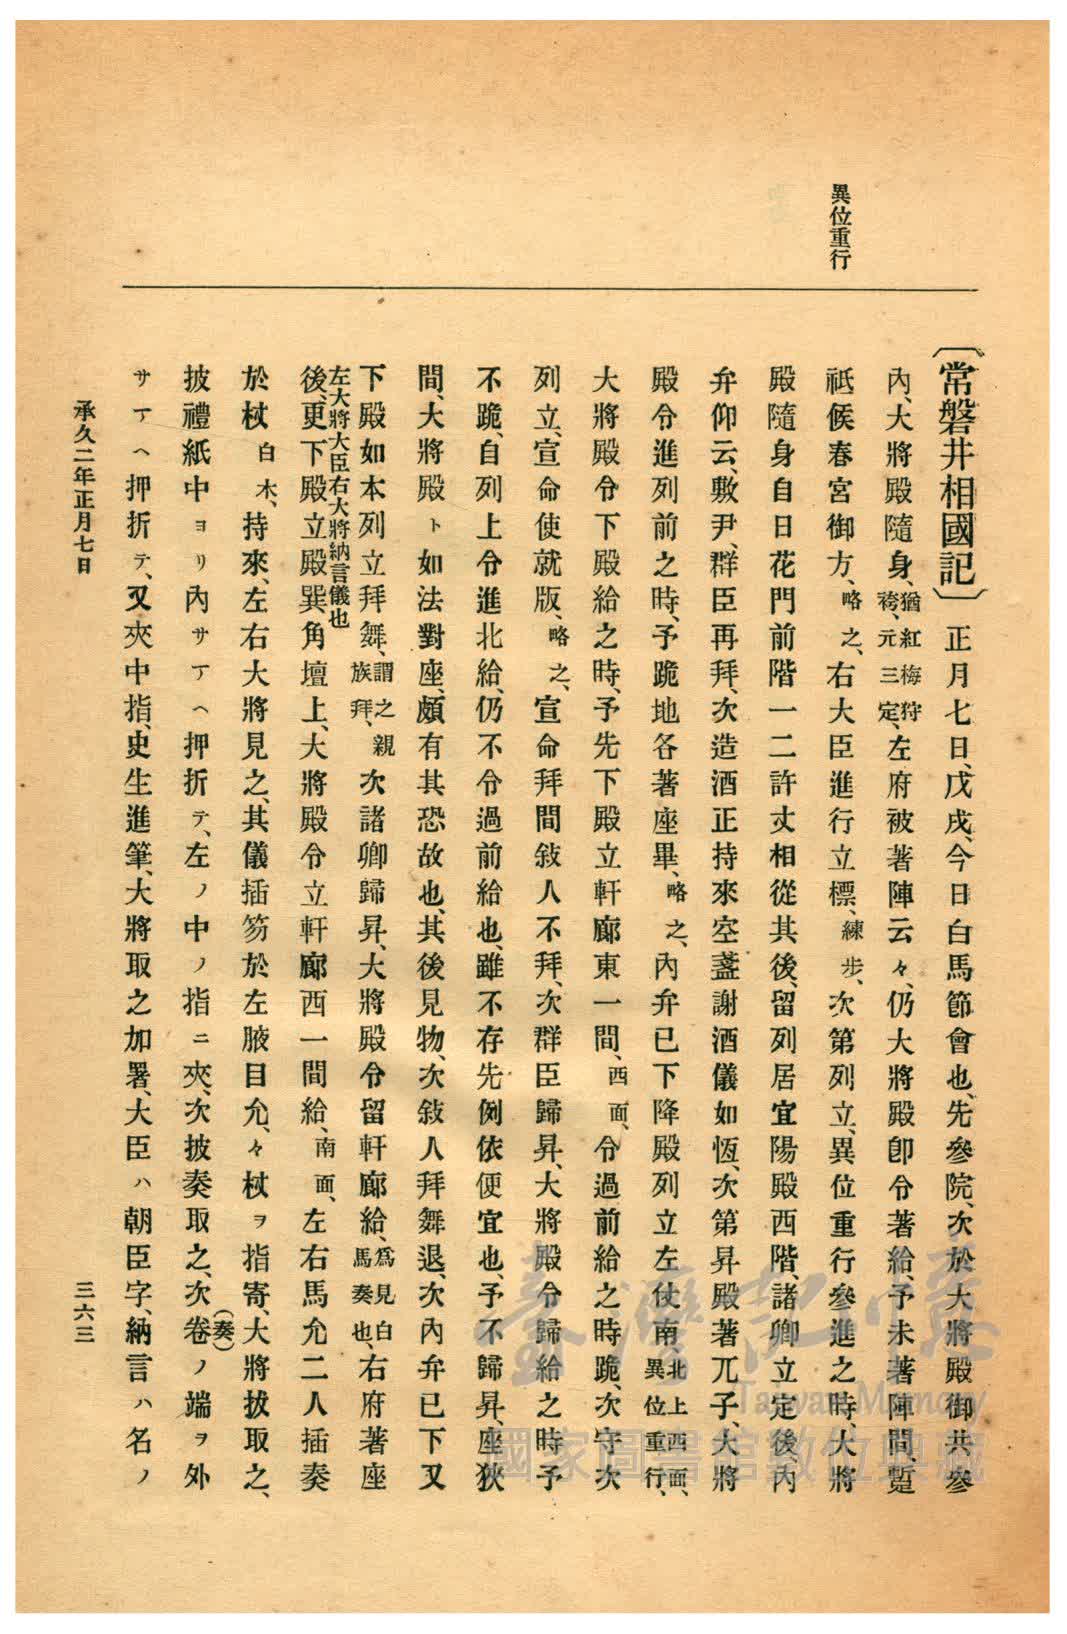 異位重行
〔常磐井相國記〕正月七日、戊戌、今日白馬節會也、先參院、次於大將殿御共參
內、大將殿隨身、猶紅梅狩袴、元三定、左府被著陣云々、仍大將殿卽令著給、予未著陣間、蹔
祇候春宮御方、略之、右大臣進行立標、練步、次第列立、異位重行參進之時、大將
殿隨身自日花門前階一二許丈相從其後、留列居宜陽殿西階、諸卿立定後、內
弁仰云、敷尹、群臣再拜、次造酒正持來空盞謝酒儀如恆、次第昇殿著兀子、大將
殿令進列前之時、予跪地各著座畢、略之、內弁已下降殿列立左仗南北上西面、異位重行、
大將殿令下殿給之時、予先下殿立軒廊東一間、西面、令過前給之時跪、次守次
列立、宣命使就版、略之、宣命拜間敍人不拜、次群臣歸昇、大將殿令歸給之時予
不跪、自列上令進北給、仍不令過前給也、雖不存先例依便宜也、予不歸昇、座狹
間、大將殿ト如法對座、頗有其恐故也、其後見物、次敍人拜舞退、次內弁已下又
下殿如本列立拜舞、謂之親族拜、次諸卿歸昇、大將殿令留軒廊給、爲見白馬奏也、右府著座
左大將大臣右大將納言儀也
後、更下殿立殿巽角壇上、大將殿令立軒廊西一間給、南面、左右馬允二人插奏
於杖白木、持來、左右大將見之、其儀插笏於左腋目允、々杖ヲ指寄、大將拔取之、
披禮紙中ヨリ內サマヘ押折テ、左ノ中ノ指ニ夾、次披奏取之、次卷(奏)ノ端ヲ外
サマヘ押折テ、又夾中指、史生進筆、大將取之加署、大臣ハ朝臣字、納言ハ名ノ
承久二年正月七日
三六三
臺灣記憶
Taiwan Memory
國家圖書館數位典藏